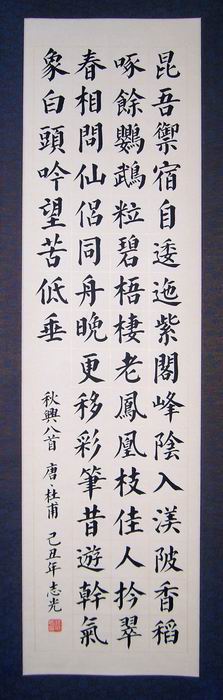 昆吾禦宿自逶迤紫閣峰陰入渼陂香稻
啄餘鸚鵡粒碧梧棲老鳳凰枝佳人拾翠
春相問仙侶同舟晚更移彩筆昔遊幹氣
象白頭吟望苦低垂
秋興八首 唐、杜甫 己丑年 志光